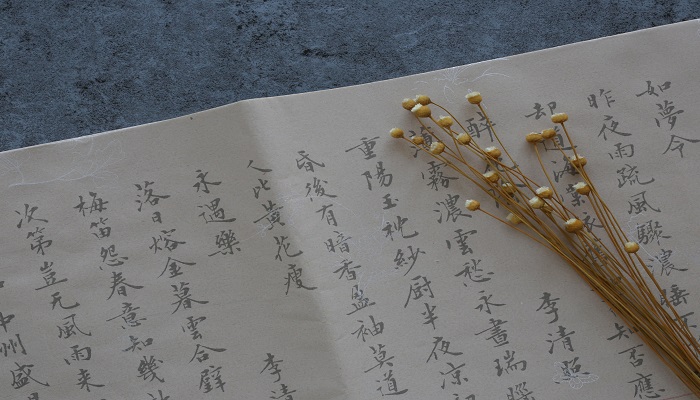 如夢令
昨夜雨疏風驟濃睡不
却道海棠知否應
醉 李清照
薄霧濃雲愁永晝瑞腦
重陽玉枕紗厨半夜涼初
昏後有暗香盈袖莫道
人比黃花瘦
永遇樂 李清
落日熔金暮雲合璧
梅笛怨春意知幾
次第豈无風雨來
中州盛